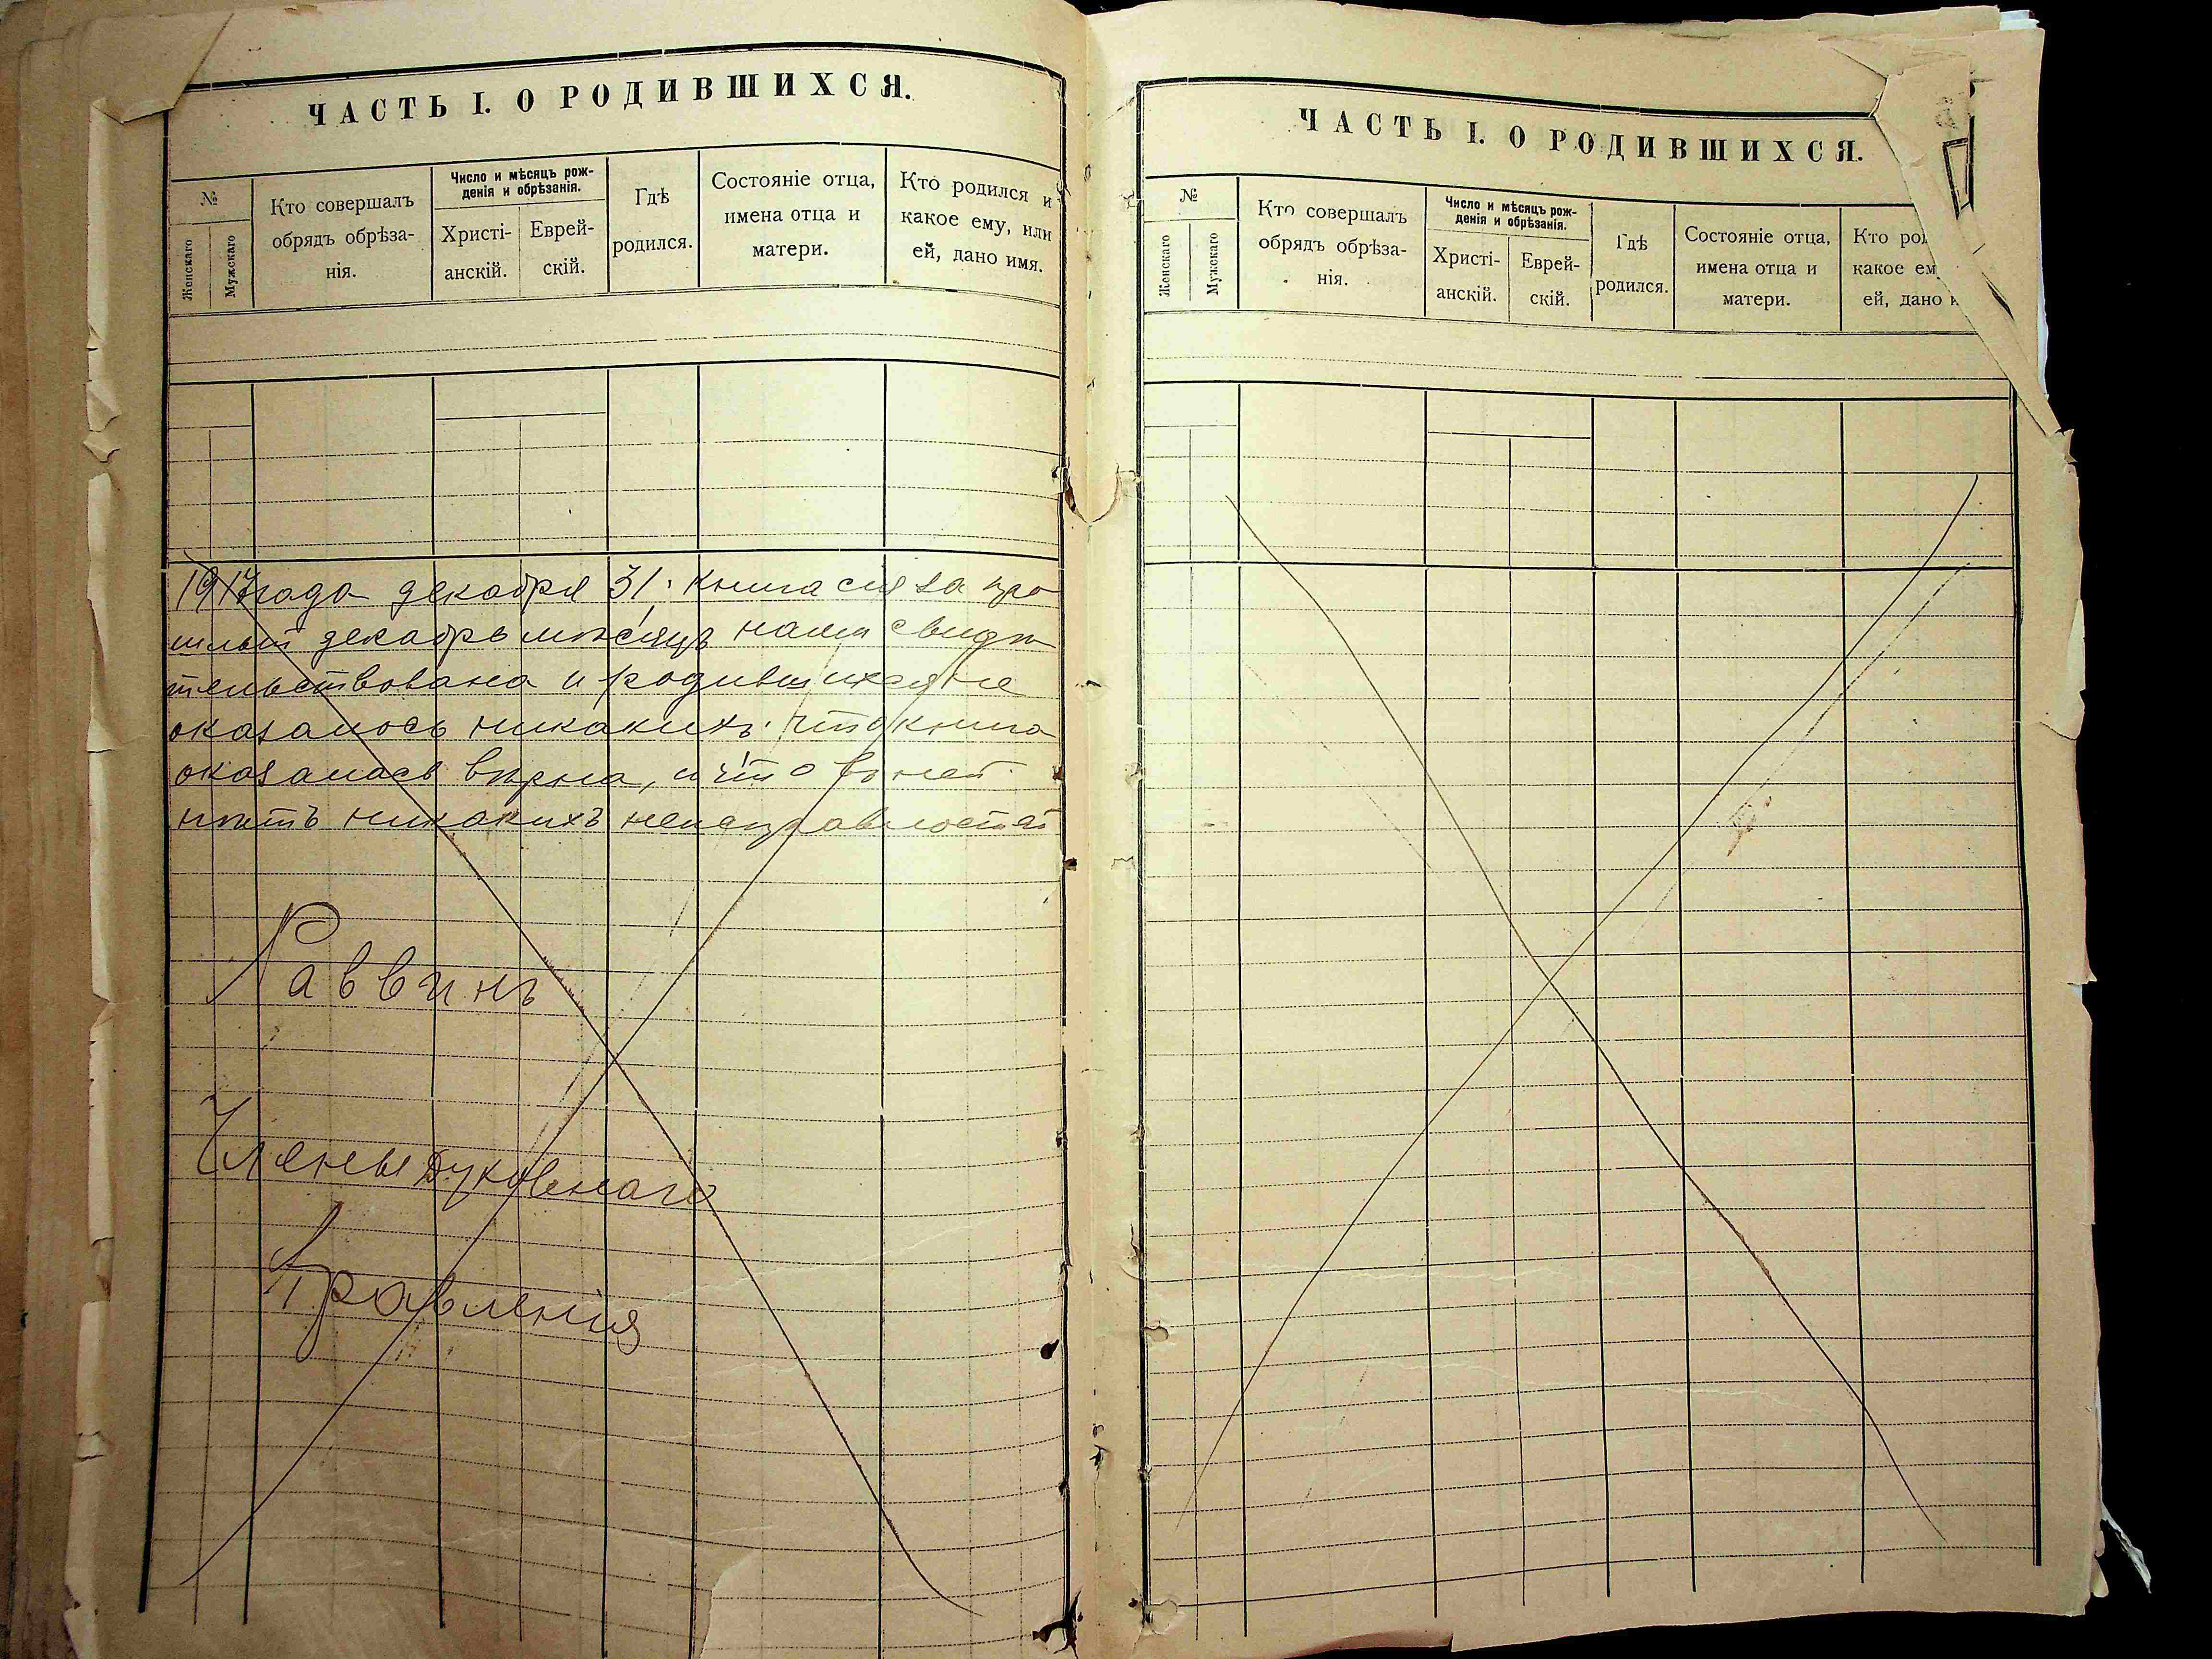 ЧАСТЬ I. О РОДИВШИХСЯ.
№
Женскаго
Мужскаго
Кто совершалъ
обрядъ обрѣза-
нія.
Число и мѣсяцъ рож-
денія и обрѣзанія.
Христі-
анскій.
Еврей-
скій.
Гдѣ
родился.
Состояніе отца,
имена отца и
матери.
Кто родился и
какое ему, или
ей, дано имя.
1917 года декабря 31. Книга сія за про
шлый декабрь мѣсяцъ нами свидѣ
тельствована и родившихся не
оказалось никакихъ. Что книга
оказалась вѣрна, и что въ ней
нѣтъ никакихъ неисправностей
Раввинъ
Члены Духовнаго
Правленія
ЧАСТЬ I. О РОДИВШИХСЯ.
№
Женскаго
Мужскаго
Кто совершалъ
обрядъ обрѣза-
нія.
Число и мѣсяцъ рож-
денія и обрѣзанія.
Христі-
анскій.
Еврей-
скій.
Гдѣ
родился.
Состояніе отца,
имена отца и
матери.
Кто ро
какое ем
ей, дано